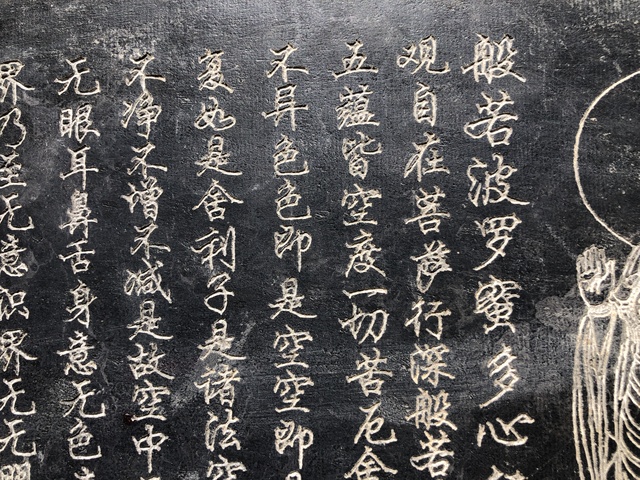 般若波罗蜜多心
观自在菩萨行深般若
五蕴皆空度一切苦厄舍
不异色色即是空空即
复如是舍利子是诸法空
不净不增不减是故空中
无眼耳鼻舌身意无色
界乃至无意识界无无明